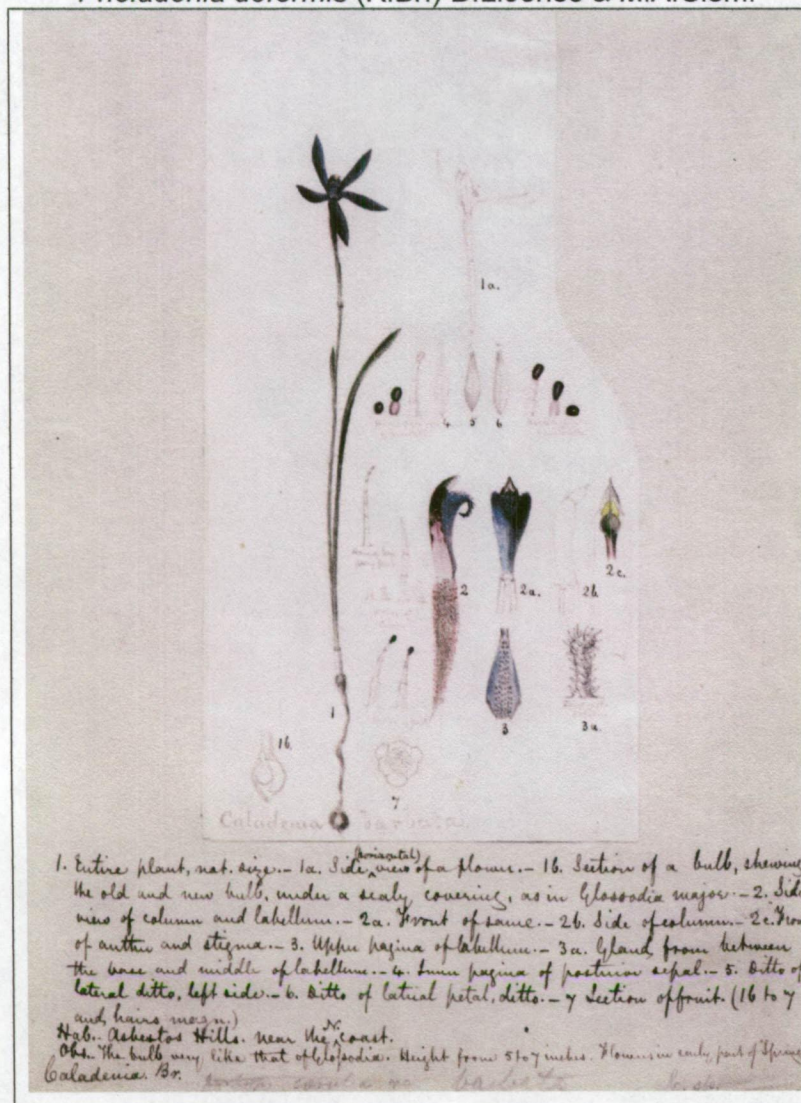 Pheladenia deformis (R.Br.) D.L.Jones & M.A.Clem.
1a.
4 5 6
2 2a. 2b. 2c.
1 3 3a.
1b.
7
Caladenia barbata
1. Entire plant, nat. size. - 1a. Side (horizontal) view of a flower. - 1b. Section of a bulb, shewing
the old and new bulb, under a scaly covering, as in Glossodia major. - 2. Side
view of column and labellum. - 2a. Front of same. - 2b. Side of column. - 2c. Fron
of anther and stigma. - 3. Upper pagina of labellum. - 3a. Gland from between
the base and middle of labellum. - 4. Inner pagina of posterior sepal. - 5. Ditto of
lateral ditto, left side. - 6. Ditto of lateral petal, ditto. - 7 Section of fruit. (1b to 7
and hairs magn.)
Hab. Asbestos Hills. near the N. coast.
Obs. The bulb very like that of Glossodia. Height from 5 to 7 inches. Flowers in early part of Spring
Caladenia. Br.